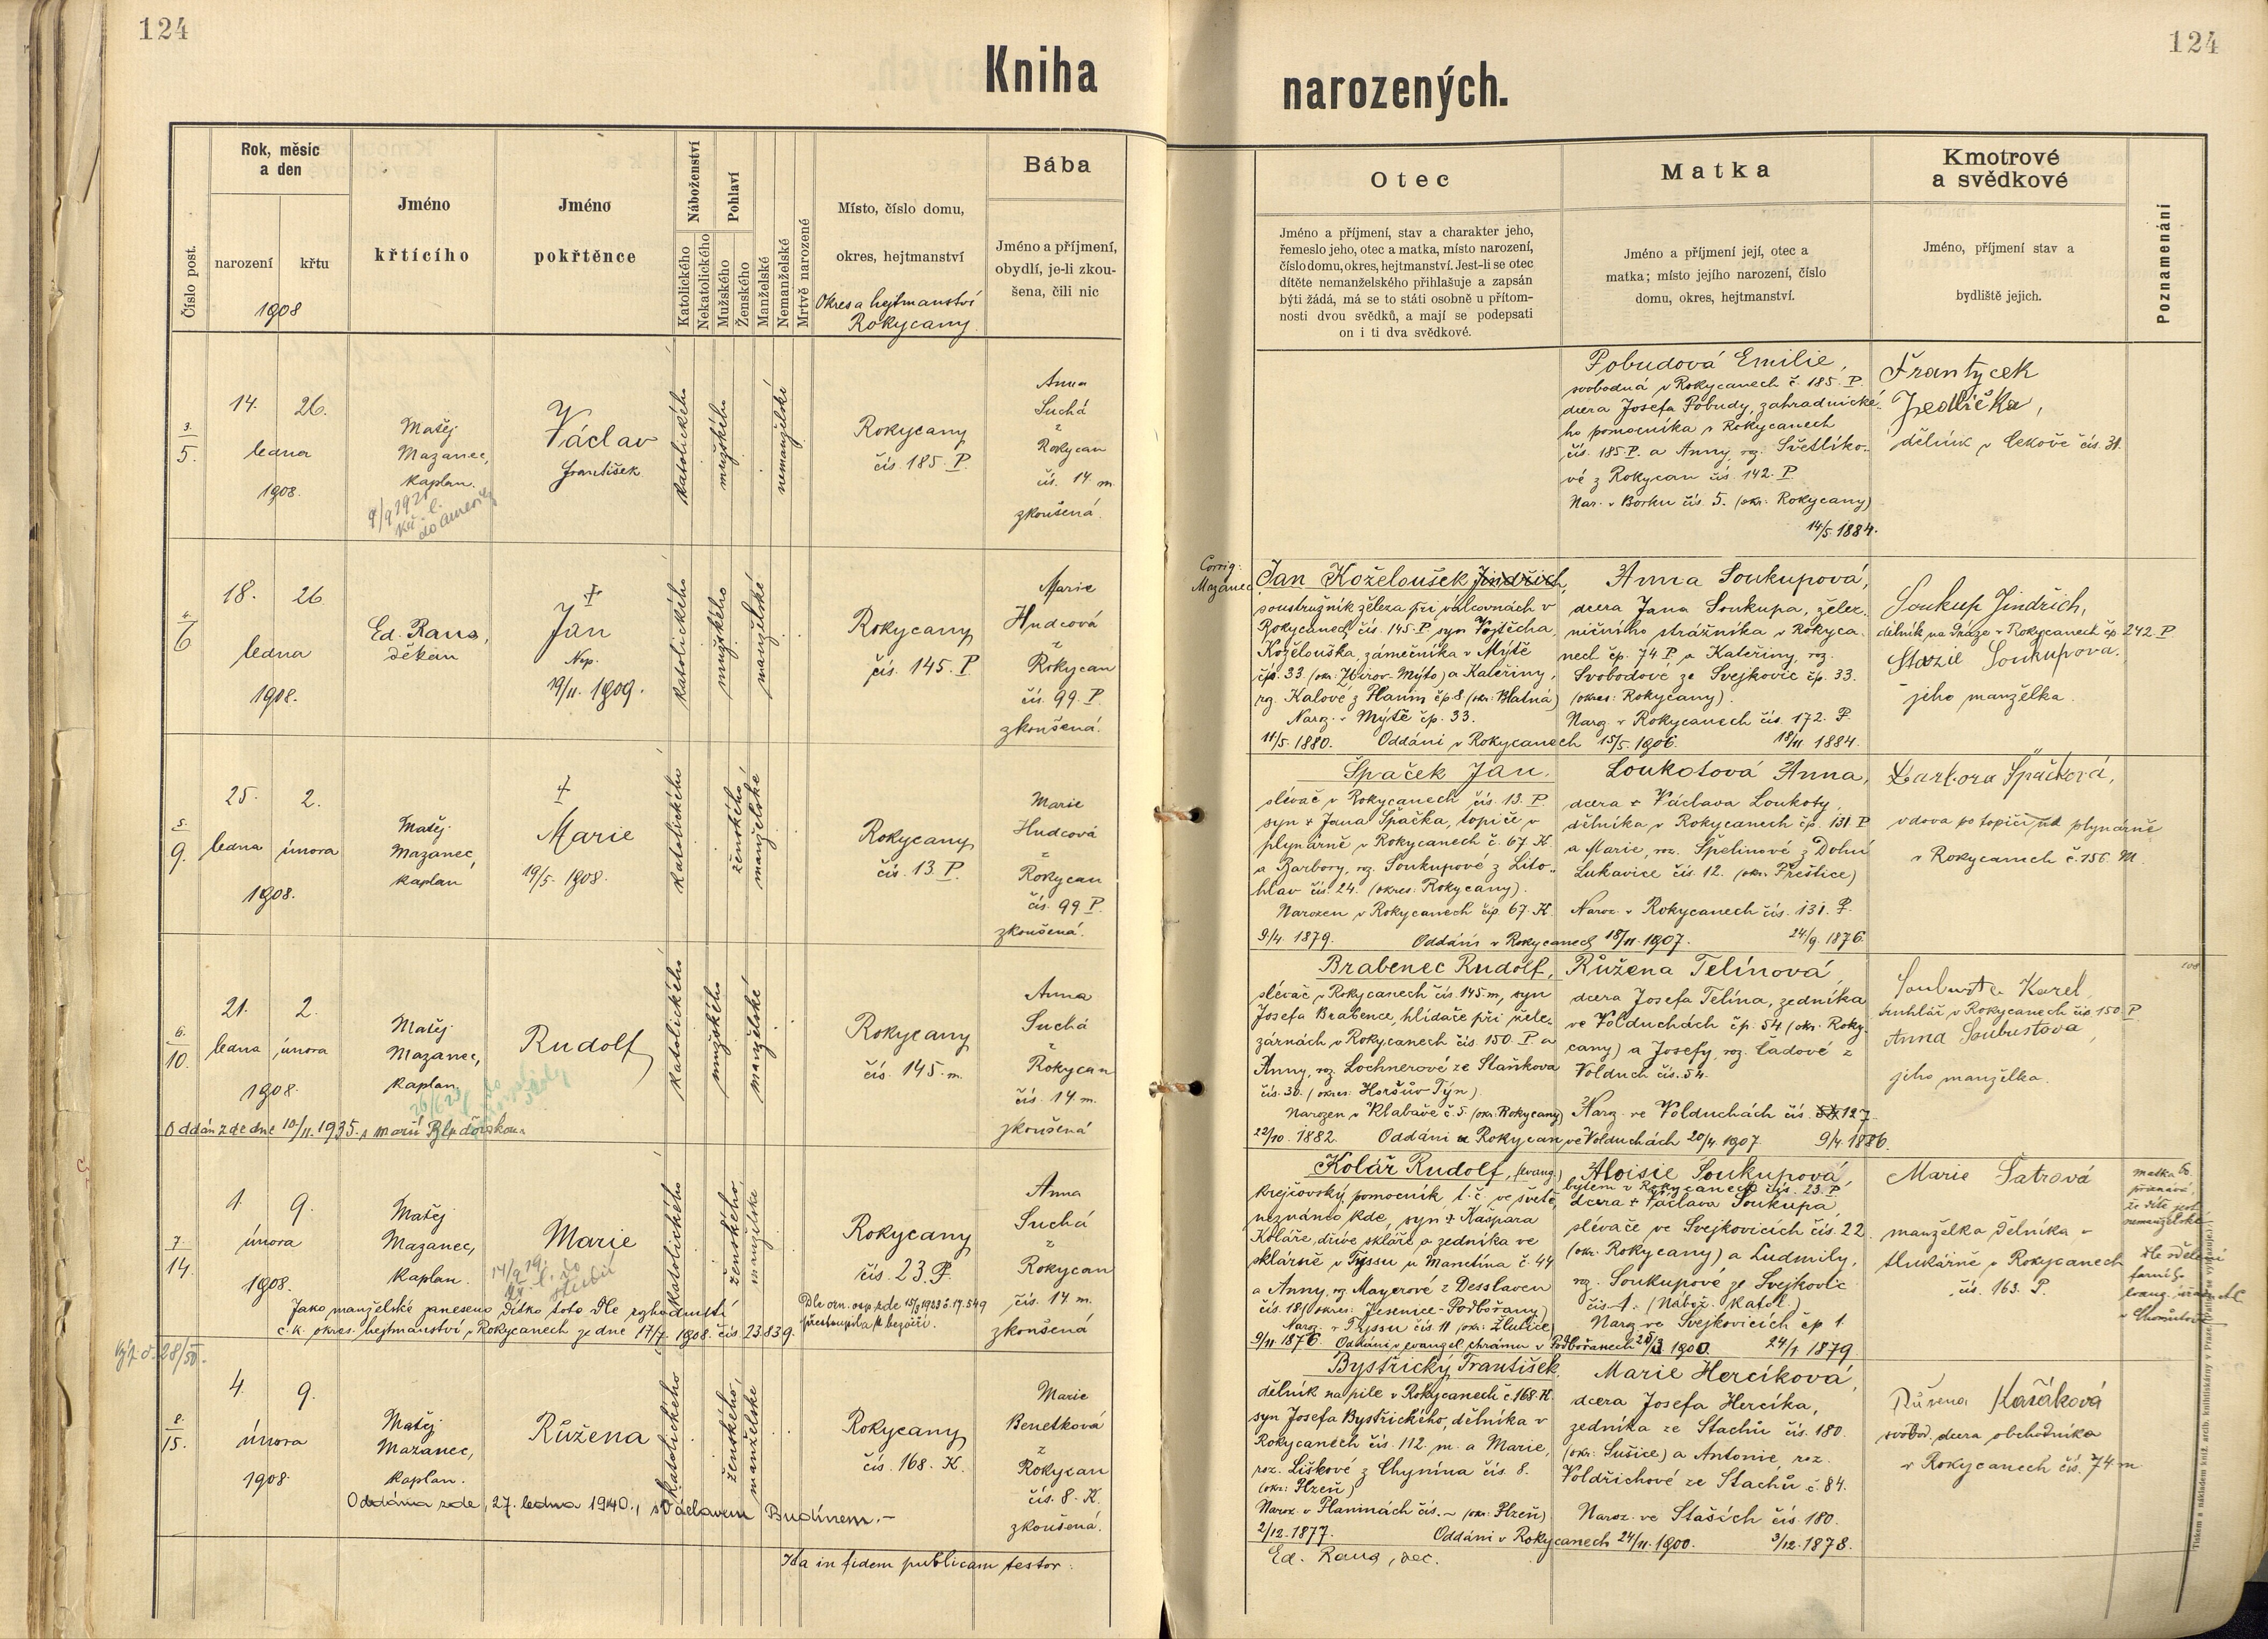 124
124
Kniha
narozených.
Číslo post.
Rok, měsíc
a den
narození
křtu
1908
Jméno
křtícího
Jméno
pokřtěnce
Náboženství
Katolického
Nekatolického
Pohlaví
Mužského
Ženského
Manželské
Nemanželské
Mrtvě narozené
Místo, číslo domu,
okres, hejtmanství
Okres a hejtmanství
Rokycany
Bába
Jméno a příjmení,
obydlí, je-li zkou-
šena, čili nic
Otec
Jméno a příjmení, stav a charakter jeho,
řemeslo jeho, otec a matka, místo narození,
číslo domu, okres, hejtmanství. Jest-li se otec
dítěte nemanželského přihlašuje a zapsán
býti žádá, má se to státi osobně u přítom-
nosti dvou svědků, a mají se podepsati
on i ti dva svědkové.
Matka
Jméno a příjmení její, otec a
matka; místo jejího narození, číslo
domu, okres, hejtmanství.
Kmotrové
a svědkové
Jméno, příjmení stav a
bydliště jejich.
Poznamenání
3.
5.
14. 26.
ledna
1908.
Matěj
Mazanec,
kaplan.
Václav
František
katolického
mužského
nemanželské
Rokycany
čís. 185. P.
Anna
Suchá
z
Rokycan
čís. 14. m
zkoušená.
Pobudová Emilie,
svobodná v Rokycanech č. 185. P.
dcera Josefa Pobudy, zahradnické-
ho pomocníka v Rokycanech
čís. 185. P. a Anny, rz. Světlíko-
vé z Rokycan čís. 142. P.
Nar. v Borku čís. 5. (okr. Rokycany)
14/5. 1884.
Frantycek
Jedlička,
dělník v Cekově čís. 31.
4.
6
18. 26.
ledna
1908.
Ed. Raus,
děkan
†
Jan
Nep.
19/11. 1909.
katolického
mužského
manželské
Rokycany
čís. 145. P.
Marie
Hudcová
z
Rokycan
čís. 99. P.
zkoušená.
Corrig:
Mazanec
Jan Koželoušek Jindřich,
soustružník železa při válcovnách v
Rokycanech čís. 145. P. syn Vojtěcha
Koželouška, zámečníka v Mýtě
čp. 33. (okr. Zbirov-Mýto) a Kateřiny,
rz. Kalové z Planin čp. 8 (okr. Blatná)
Narz. v Mýtě čp. 33.
11/5. 1880. Oddáni v Rokycanech 15/5. 1906.
Anna Soukupová,
dcera Jana Soukupa, želez-
ničního strážníka v Rokyca-
nech čp. 74 P. a Kateřiny, roz.
Svobodové ze Svejkovic čp. 33.
(okres: Rokycany).
Narz. v Rokycanech čís. 172. P.
18/11. 1884.
Soukup Jindřich,
dělník na dráze v Rokycanech čp 242. P.
Soukupova.
jeho manželka.
5.
9.
25. 2.
ledna února
1908.
Matěj
Mazanec,
kaplan
†
Marie
19/5. 1908.
katolického
ženského
manželské
Rokycany
čís. 13 P.
Marie
Hudcová
z
Rokycan
čís. 99 P.
zkoušená.
Špaček Jan.
slévač v Rokycanech čís. 13. P.
syn † Jana Špačka, topiče v
plynárně v Rokycanech č. 67. K.
a Barbory, rz. Soukupové z Lito-
hlav čís. 24. (okres: Rokycany).
Narozen v Rokycanech čp. 67. K.
9/4. 1879. Oddáni v Rokycanech 18/11. 1907.
Loukotová Anna,
dcera † Václava Loukoty,
dělníka v Rokycanech čp. 131 P
a Marie, roz. Spelinové z Dolní
Lukavice čís. 12. (okr. Přeštice)
Naroz. v Rokycanech čís. 131. P.
24/9. 1876.
Barbora Špačková,
vdova po topiči na plynárně
v Rokycanech č. 156. M.
6.
10.
21. 2.
ledna února
1908.
Matěj
Mazanec,
kaplan.
Rudolf
katolického
mužského
manželské
Rokycany
čís. 145. m.
Anna
Suchá
z
Rokycan
čís. 14. m.
zkoušená
Oddán zde dne 10/11. 1935. s Marií
Brabenec Rudolf,
slévač v Rokycanech čís. 145. m, syn
Josefa Brabence, hlídače při žele-
zárnách v Rokycanech čís. 150. P. a
Anny, roz. Lochnerové ze Staňkova
čís. 30. (okres: Horšův Týn).
Narozen v Klabavě č. 5. (okr. Rokycany)
22/10. 1882. Oddáni ve Volduchách 20/4. 1907.
Růžena Telínová
dcera Josefa Telína, zedníka
ve Volduchách čp. 54 (okr. Roky-
cany) a Josefy, roz. Čadové z
Volduch čís. 54.
Narz. ve Volduchách čís. 127.
9/4. 1886.
Soubusta Karel,
truhlář v Rokycanech čís 150. P
Anna Soubustova,
jeho manželka.
7.
14.
1. 9.
února
1908.
Matěj
Mazanec,
kaplan.
Marie
katolického
ženského
manželské
Rokycany
čís. 23. P.
Anna
Suchá
z
Rokycan
čís. 14 m.
zkoušená
Jako manželské zaneseno dítko toto dle rozhodnutí
c. k. okres. hejtmanství v Rokycanech ze dne 17/7. 1908. čís. 23.839.
Kolář Rudolf, (evang.)
krejčovský pomocník t. č. ve světě
neznámo kde, syn † Kašpara
Koláře, dříve skláře, a zedníka ve
sklárně v Tyssu u Manetína č. 44
a Anny, rz. Mayerové z Desslaven
čís. 18 (okres: Jesenice-Podbořany)
Narz. v Tyssu čís. 11 (okr. Žlutice)
9/11. 1876. Oddáni v evangel. chrámu v Podbořanech 25/3. 1900.
Aloisie Soukupová
bytem v Rokycanech čís. 23. P,
dcera † Václava Soukupa,
slévače ve Svejkovicích čís. 22.
(okr. Rokycany) a Ludmily,
rz. Soukupové ze Svejkovic
čís. 1. (Nábož. katol.)
Narz ve Svejkovicích čp 1.
24/1 1879
Marie Šatrová
manželka dělníka v
Rokycanech
čís. 163. P.
8.
15.
4. 9.
února
1908.
Matěj
Mazanec,
kaplan.
Růžena
katolického
ženského,
manželské
Rokycany
čís. 168. K.
Marie
Benetková
z
Rokycan
čís. 8. K.
zkoušená.
Oddána zde, 27. ledna 1940., s Václavem Budínem.–
Bystřický František,
dělník na pile v Rokycanech č. 168. K.
syn Josefa Bystřického, dělníka v
Rokycanech čís. 112. m. a Marie,
roz. Liškové z Chynína čís. 8.
(okr: Plzeň)
Naroz. v Planinách čís. – (okr: Plzeň)
2/12. 1877. Oddáni v Rokycanech 24/11. 1900.
Marie Hercíková,
dcera Josefa Hercíka,
zedníka ze Stachů čís. 180.
(okr. Sušice) a Antonie, roz.
Voldřichové ze Stachů č. 84.
Naroz. ve Staších čís. 180.
3/12. 1878.
Růžena Kasáková
svobod. dcera obchodníka
v Rokycanech čís. 74 m
Ita in fidem publicam testor:
Ed. Raus, dec.